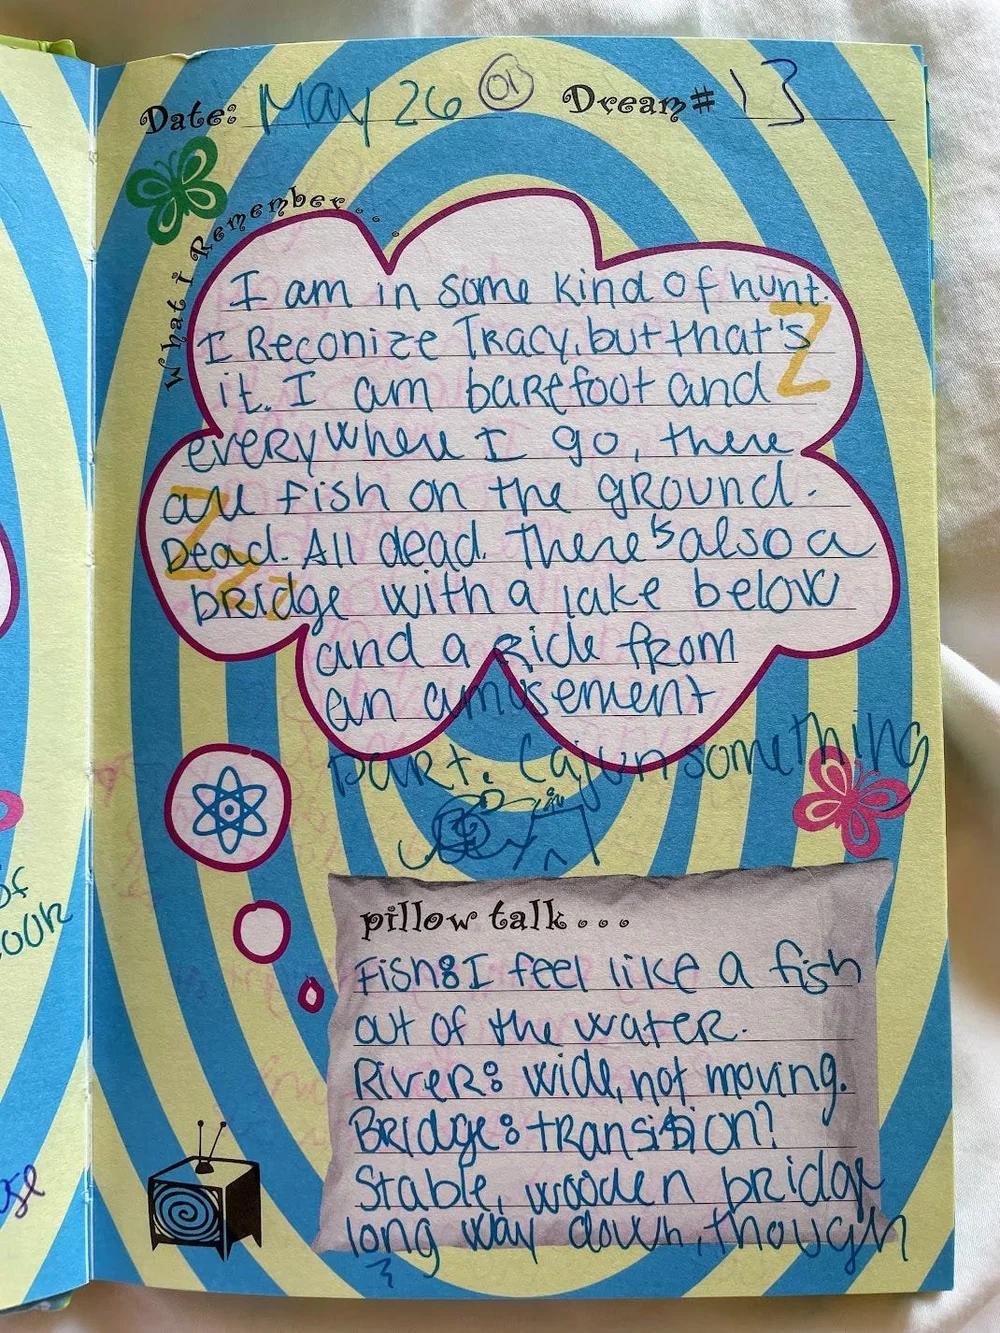 Date: May 26 01 Dream# 13
What i Remember...
I am in some kind of hunt.
I Reconize Tracy, but that's
it. I am barefoot and
everywhere I go, there
are fish on the ground.
Dead. All dead. There's also a
bridge with a lake below
and a Ride from
an amusement
park. Cajun something
pillow talk...
Fish: I feel like a fish
out of the water.
River: wide, not moving.
Bridge: transition?
Stable, wooden bridge
long way down, though
of
your
Z
Z
Z
z